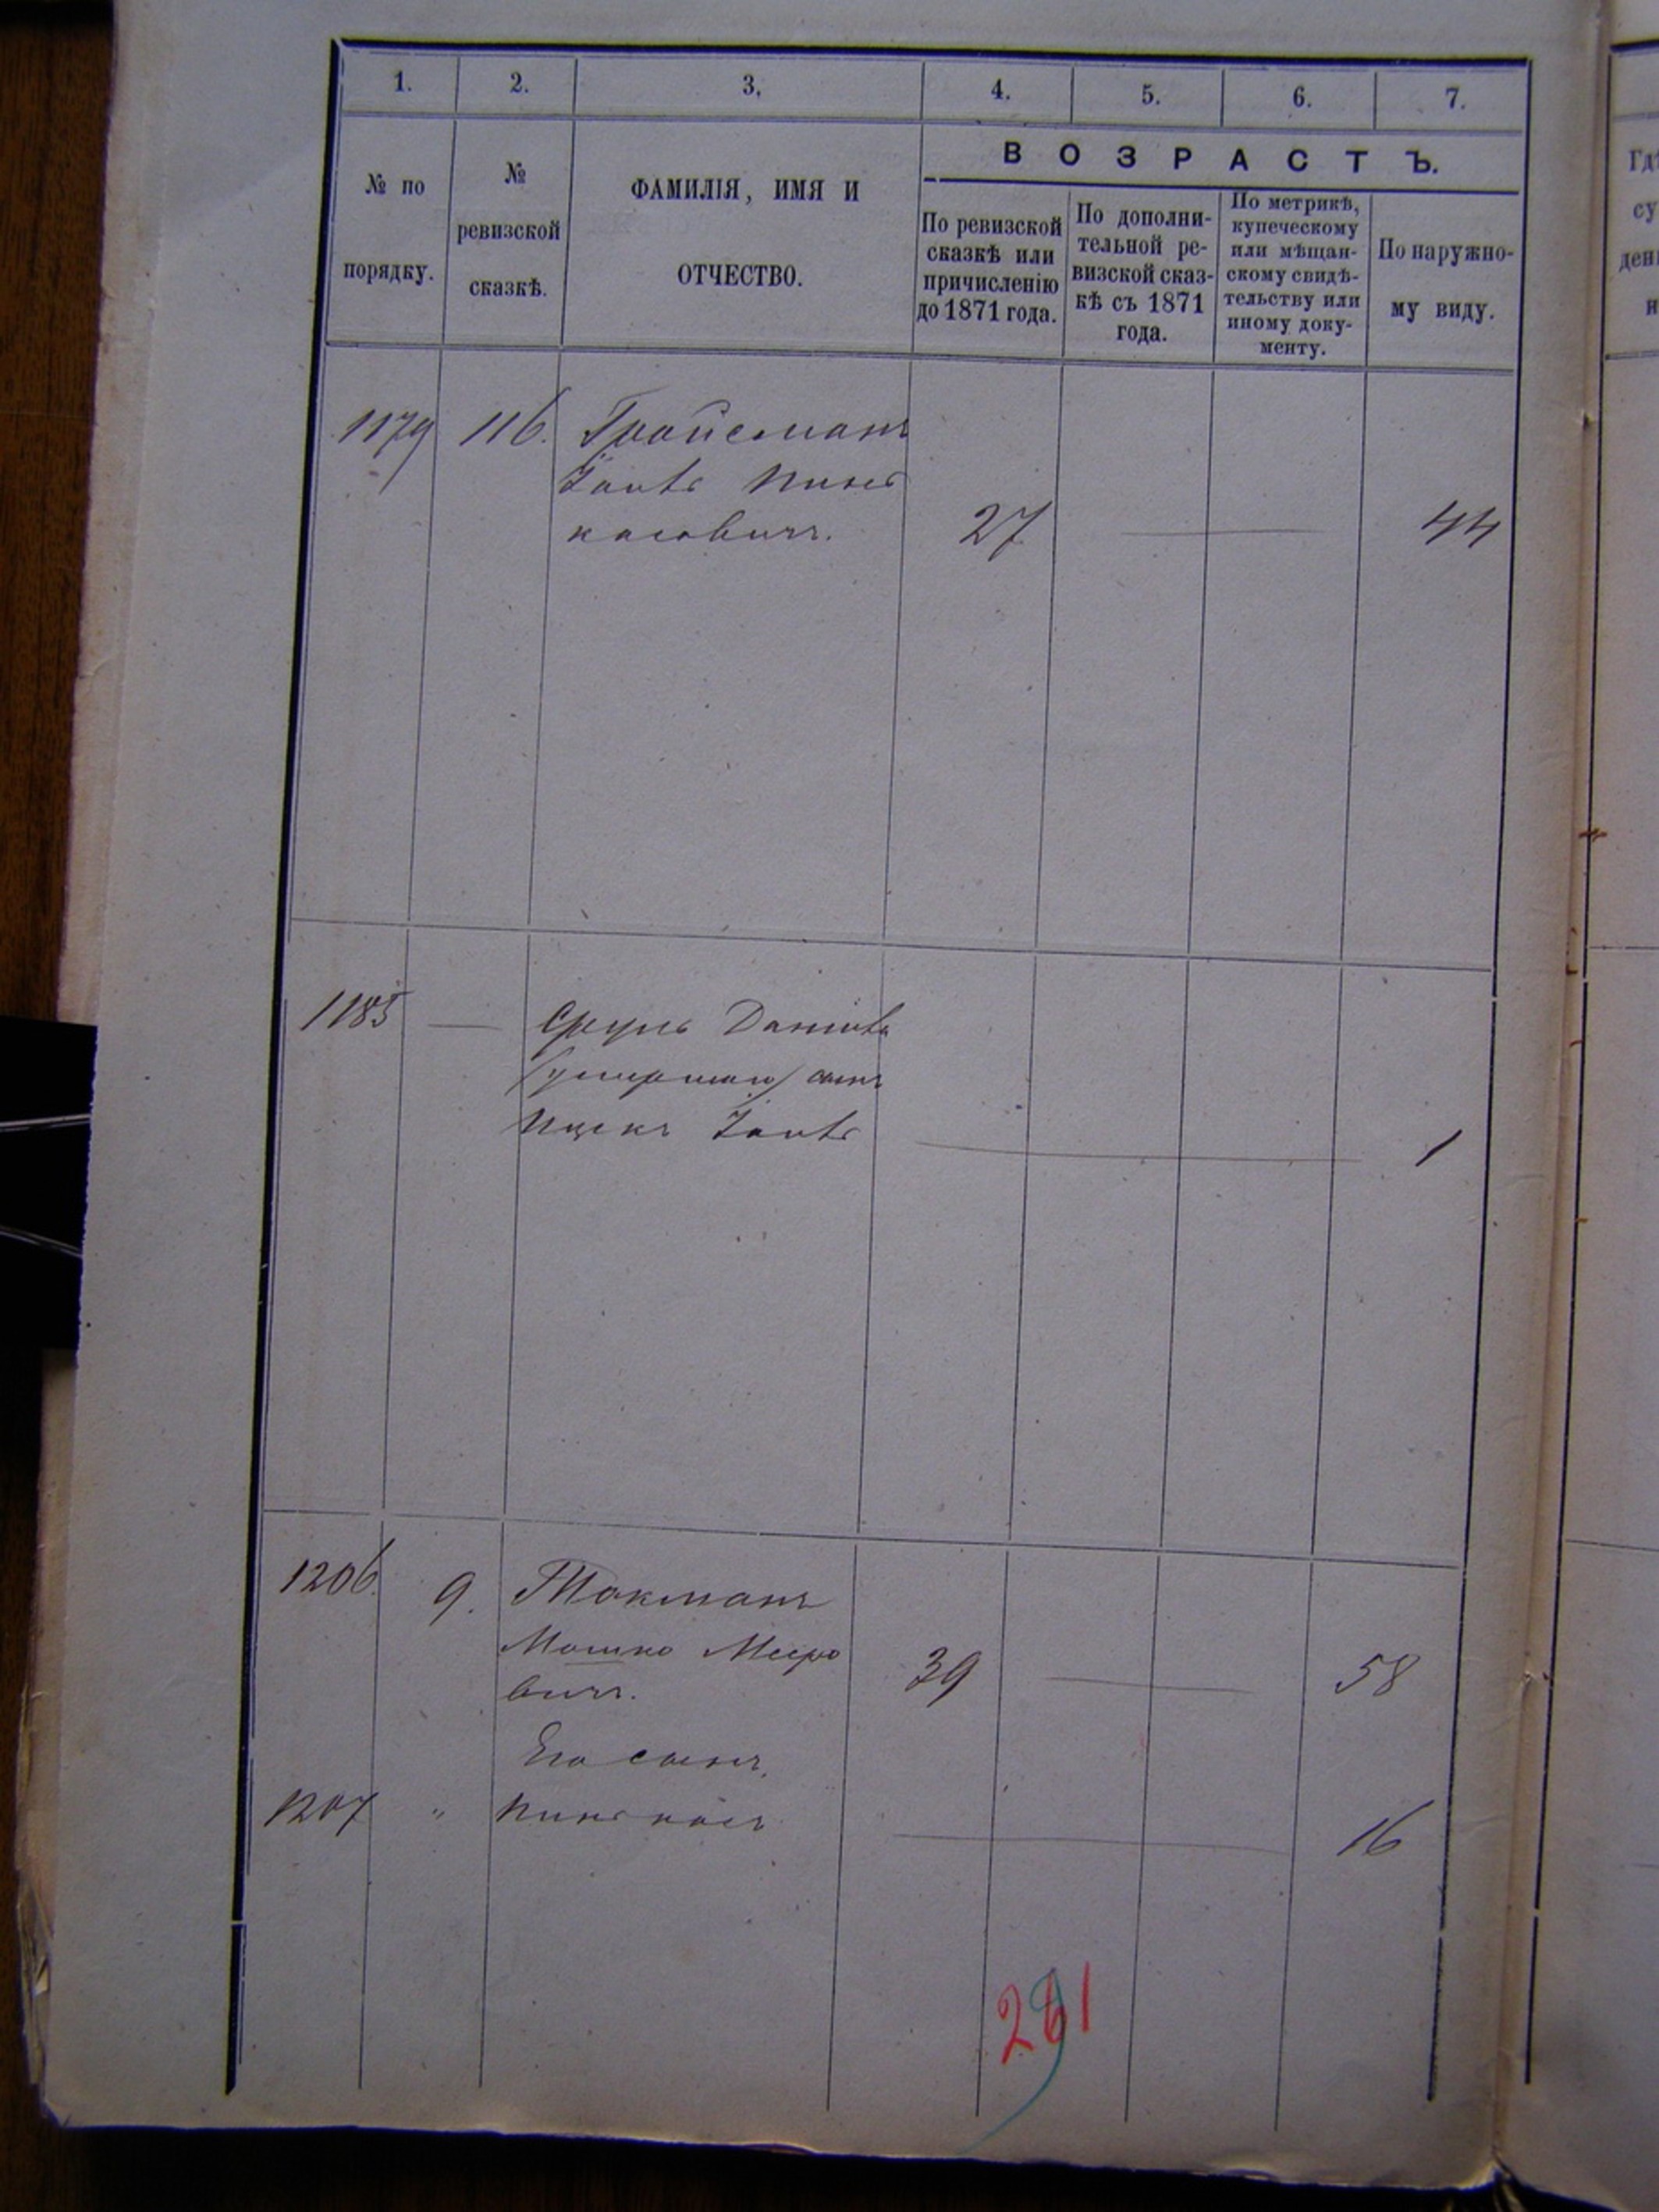 1. 2. 3. 4. 5. 6. 7.
№ по порядку.
№ ревизской сказкѣ.
ФАМИЛІЯ, ИМЯ И ОТЧЕСТВО.
ВОЗРАСТЪ.
По ревизской
сказкѣ или
причисленію
до 1871 года.
По дополни-
тельной ре-
визской сказ-
кѣ съ 1871
года.
По метрикѣ,
купеческому
или мѣщан-
скому свидѣ-
тельству или
иному доку-
менту.
По наружно-
му виду.
1179 116. Гройсманъ
Іойль Пинь
касовичъ. 27 44
1185 — Сруль
/умершаго/ сынъ
Ицекъ Іойль 1
1206. 9. Токманъ
Мошко Мееро
вичъ. 39 58
Его сынъ.
1207 " Пинькасъ 16